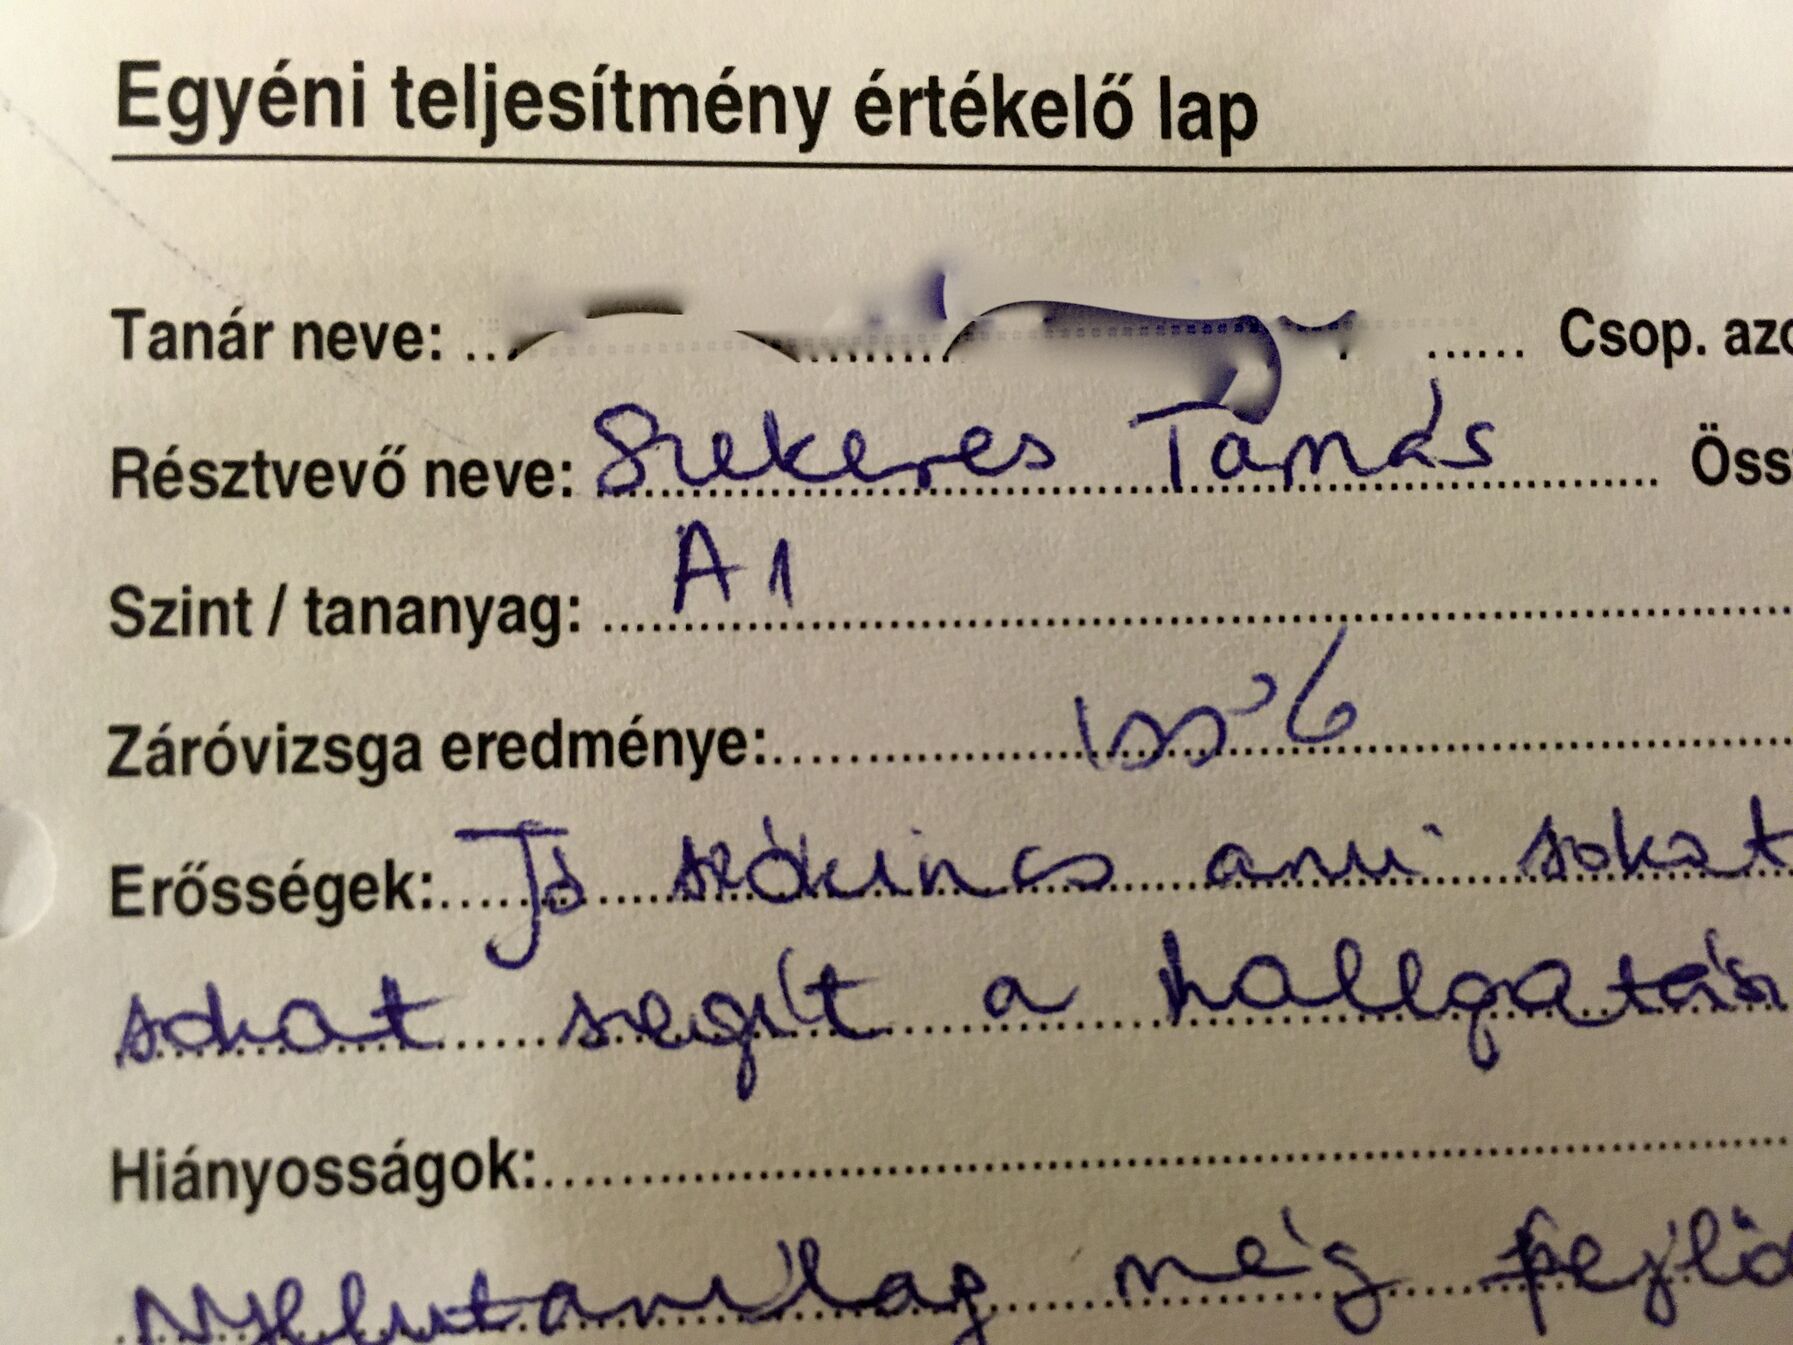 Egyéni teljesítmény értékelő lap
Tanár neve: Csop. azo
Résztvevő neve: Szekeres Tamás Öss
Szint / tananyag: A1
Záróvizsga eredménye: 100%
Erősségek: Jó szókincs ami sokat
sokat segít a hallgatás
Hiányosságok:
Nyelvtanilag még fejlőd